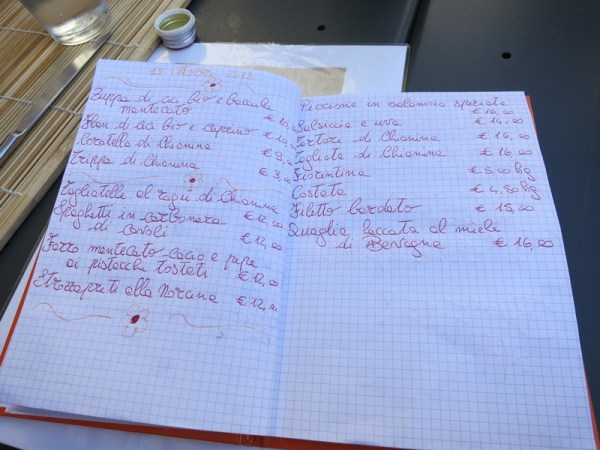 Zuppa di ceci bio e baccalà
mantecato € 10,00
Flan di ceci bio e caprino € 10,00
Coratella di Chianina € 9,00
Trippa di Chianina € 9,00
Tagliatelle al ragù di Chianina € 12,00
Spaghetti in carbonara
di cavoli € 12,00
Farro mantecato cacio e pepe
ai pistacchi tostati € 12,00
Strozzapreti alla Norcina € 12,00
Piccione in salamoia speziata
€ 16,00
Salsiccia e uva € 14,00
Tartare di Chianina € 16,00
Tagliata di Chianina € 16,00
Fiorentina € 5,00 hg
Costata € 4,50 hg
Filetto bardato € 18,50
Quaglia laccata al miele
di Bevagna € 16,00